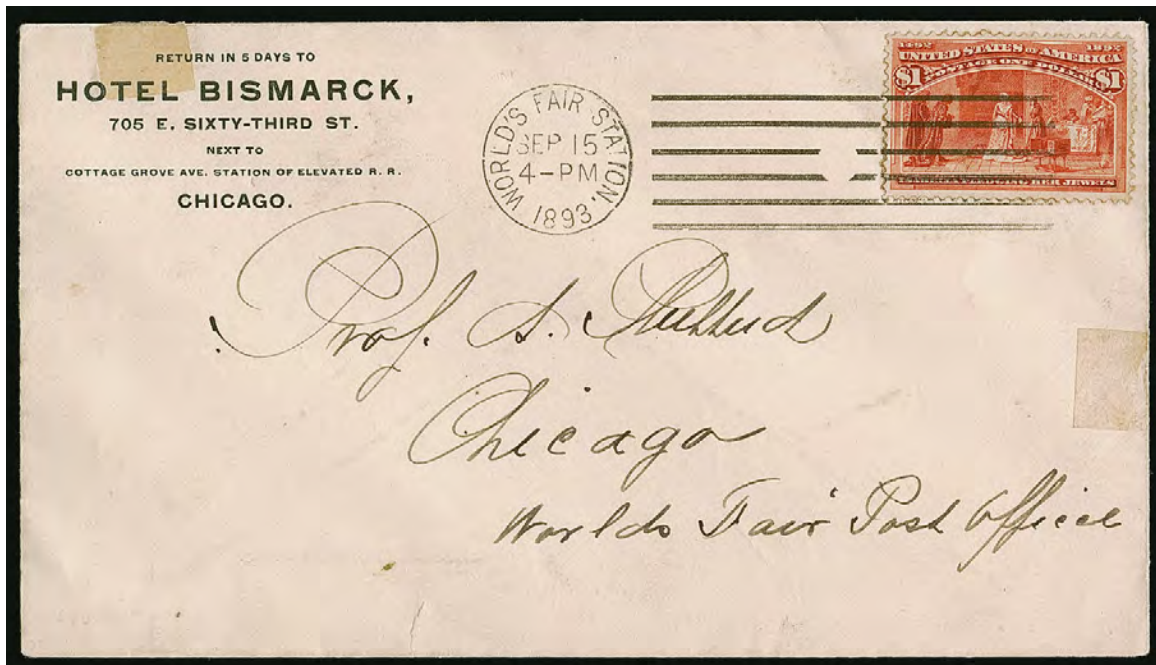 RETURN IN 5 DAYS TO
HOTEL BISMARCK,
705 E. SIXTY-THIRD ST.
NEXT TO
COTTAGE GROVE AVE. STATION OF ELEVATED R. R.
CHICAGO.
WORLD'S FAIR STATION.
SEP 15
4-PM
1893
1892 1892
UNITED STATES OF AMERICA
POSTAGE ONE DOLLAR
$1 $1
HER JEWELS
Prof. S.
Chicago
Worlds Fair Post Office